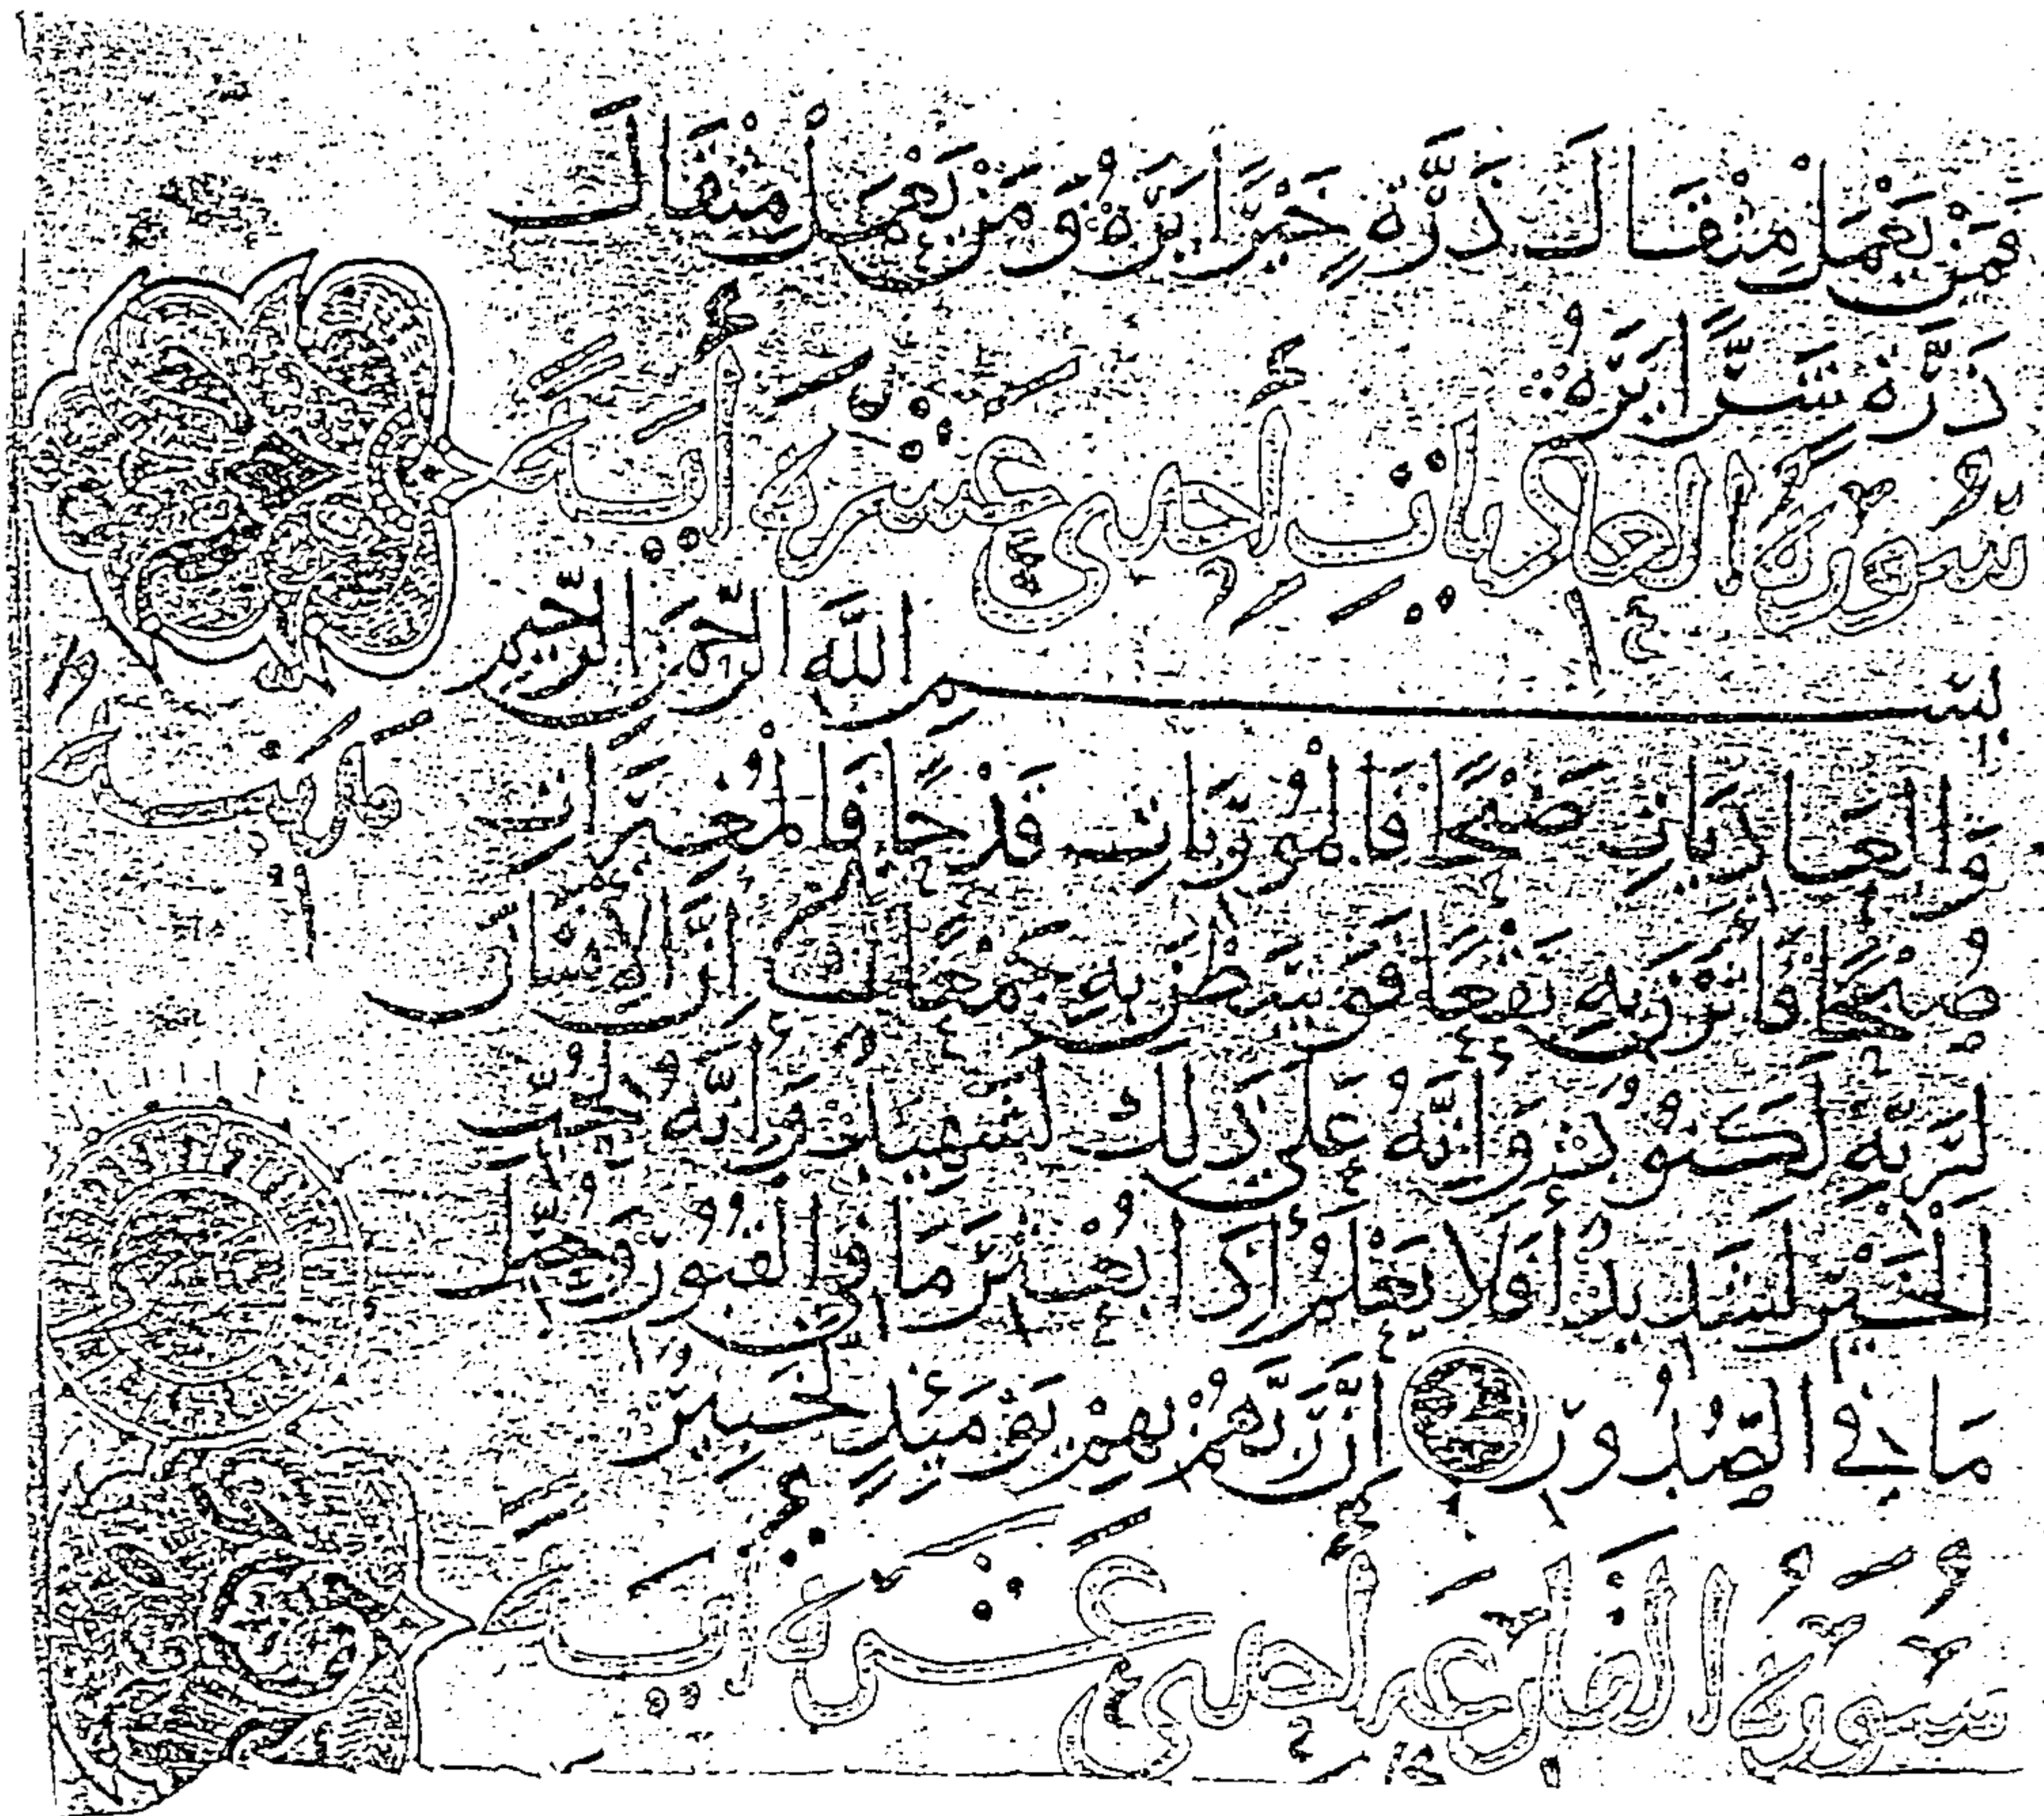 فَمَنْ يَعْمَلْ مِثْقَالَ ذَرَّةٍ خَيْرًا يَرَهُ وَمَنْ يَعْمَلْ مِثْقَالَ
ذَرَّةٍ شَرًّا يَرَهُ
سُورَةُ العَادِيَاتِ أَحَدى عَشْرَةَ أَيَةً
بِسْمِ اللَّهِ الرَّحْمَنِ الرَّحِيمِ
مَكِّيَّة
وَالْعَادِيَاتِ ضَبْحًا فَالْمُورِيَاتِ قَدْحًا فَالْمُغِيرَاتِ
صُبْحًا فَأَثَرْنَ بِهِ نَقْعًا فَوَسَطْنَ بِهِ جَمْعًا إِنَّ الْإِنْسَانَ
لِرَبِّهِ لَكَنُودٌ وَإِنَّهُ عَلَى ذَلِكَ لَشَهِيدٌ وَإِنَّهُ لِحُبِّ
الْخَيْرِ لَشَدِيدٌ أَفَلَا يَعْلَمُ إِذَا بُعْثِرَ مَا فِي الْقُبُورِ وَحُصِّلَ
مَا فِي الصُّدُورِ إِنَّ رَبَّهُمْ بِهِمْ يَوْمَئِذٍ لَخَبِيرٌ
سُورَةُ القَارِعَةِ أَحَدى عَشْرَةَ أَيَةً